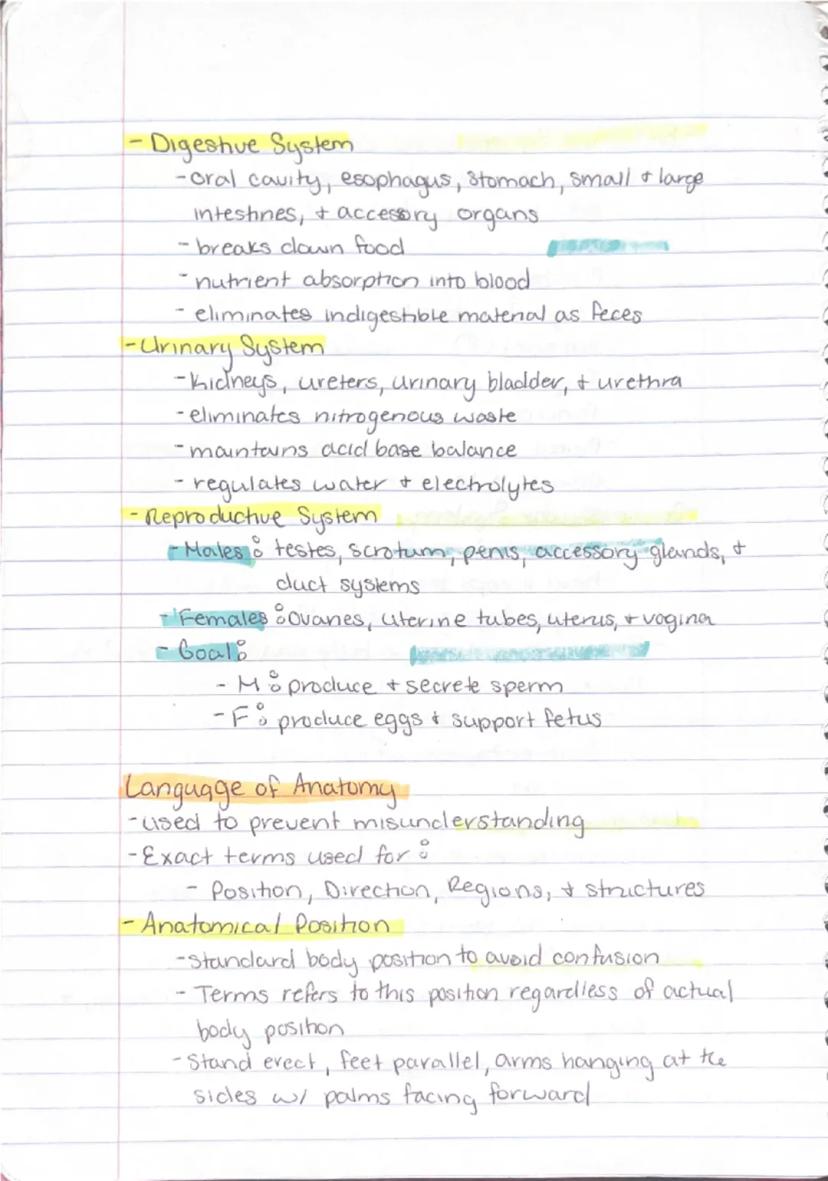 - Digestive System
- oral cavity, esophagus, stomach, small + large
intestines, + accessory organs
- breaks down food
- nutrient absorption into blood
- eliminates indigestible material as feces
- Urinary System
- Kidneys, ureters, urinary bladder, + urethra
- eliminates nitrogenous waste
- maintains acid base balance
- regulates water + electrolytes
- Reproductive System
- Males: testes, scrotum, penis, accessory glands, +
duct systems
- Females: Ovaries, uterine tubes, uterus, + vagina
- Goal:
- M: produce + secrete sperm
- F: produce eggs + support fetus
Language of Anatomy
- used to prevent misunderstanding
- Exact terms used for:
- Position, Direction, Regions, + structures
- Anatomical Position
- standard body position to avoid confusion
- Terms refers to this position regardless of actual
body position
- Stand erect, feet parallel, arms hanging at the
sides w/ palms facing forward